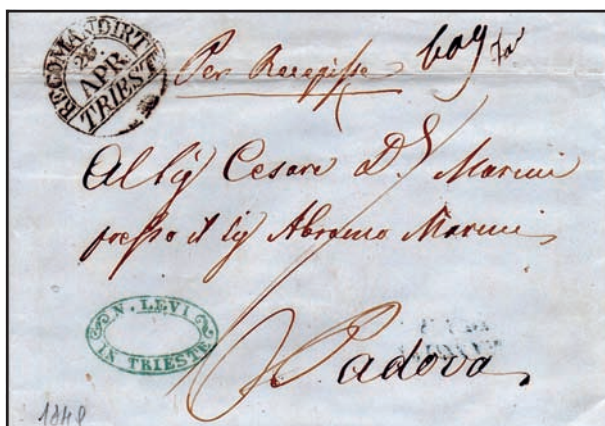 RECOMANDIRT
26.
APR.
TRIEST
Per Recepisse
609
Al Sig Cesare D. Marini
presso il Sig Abramo Marini
N. LEVI
IN TRIESTE
Padova
1848